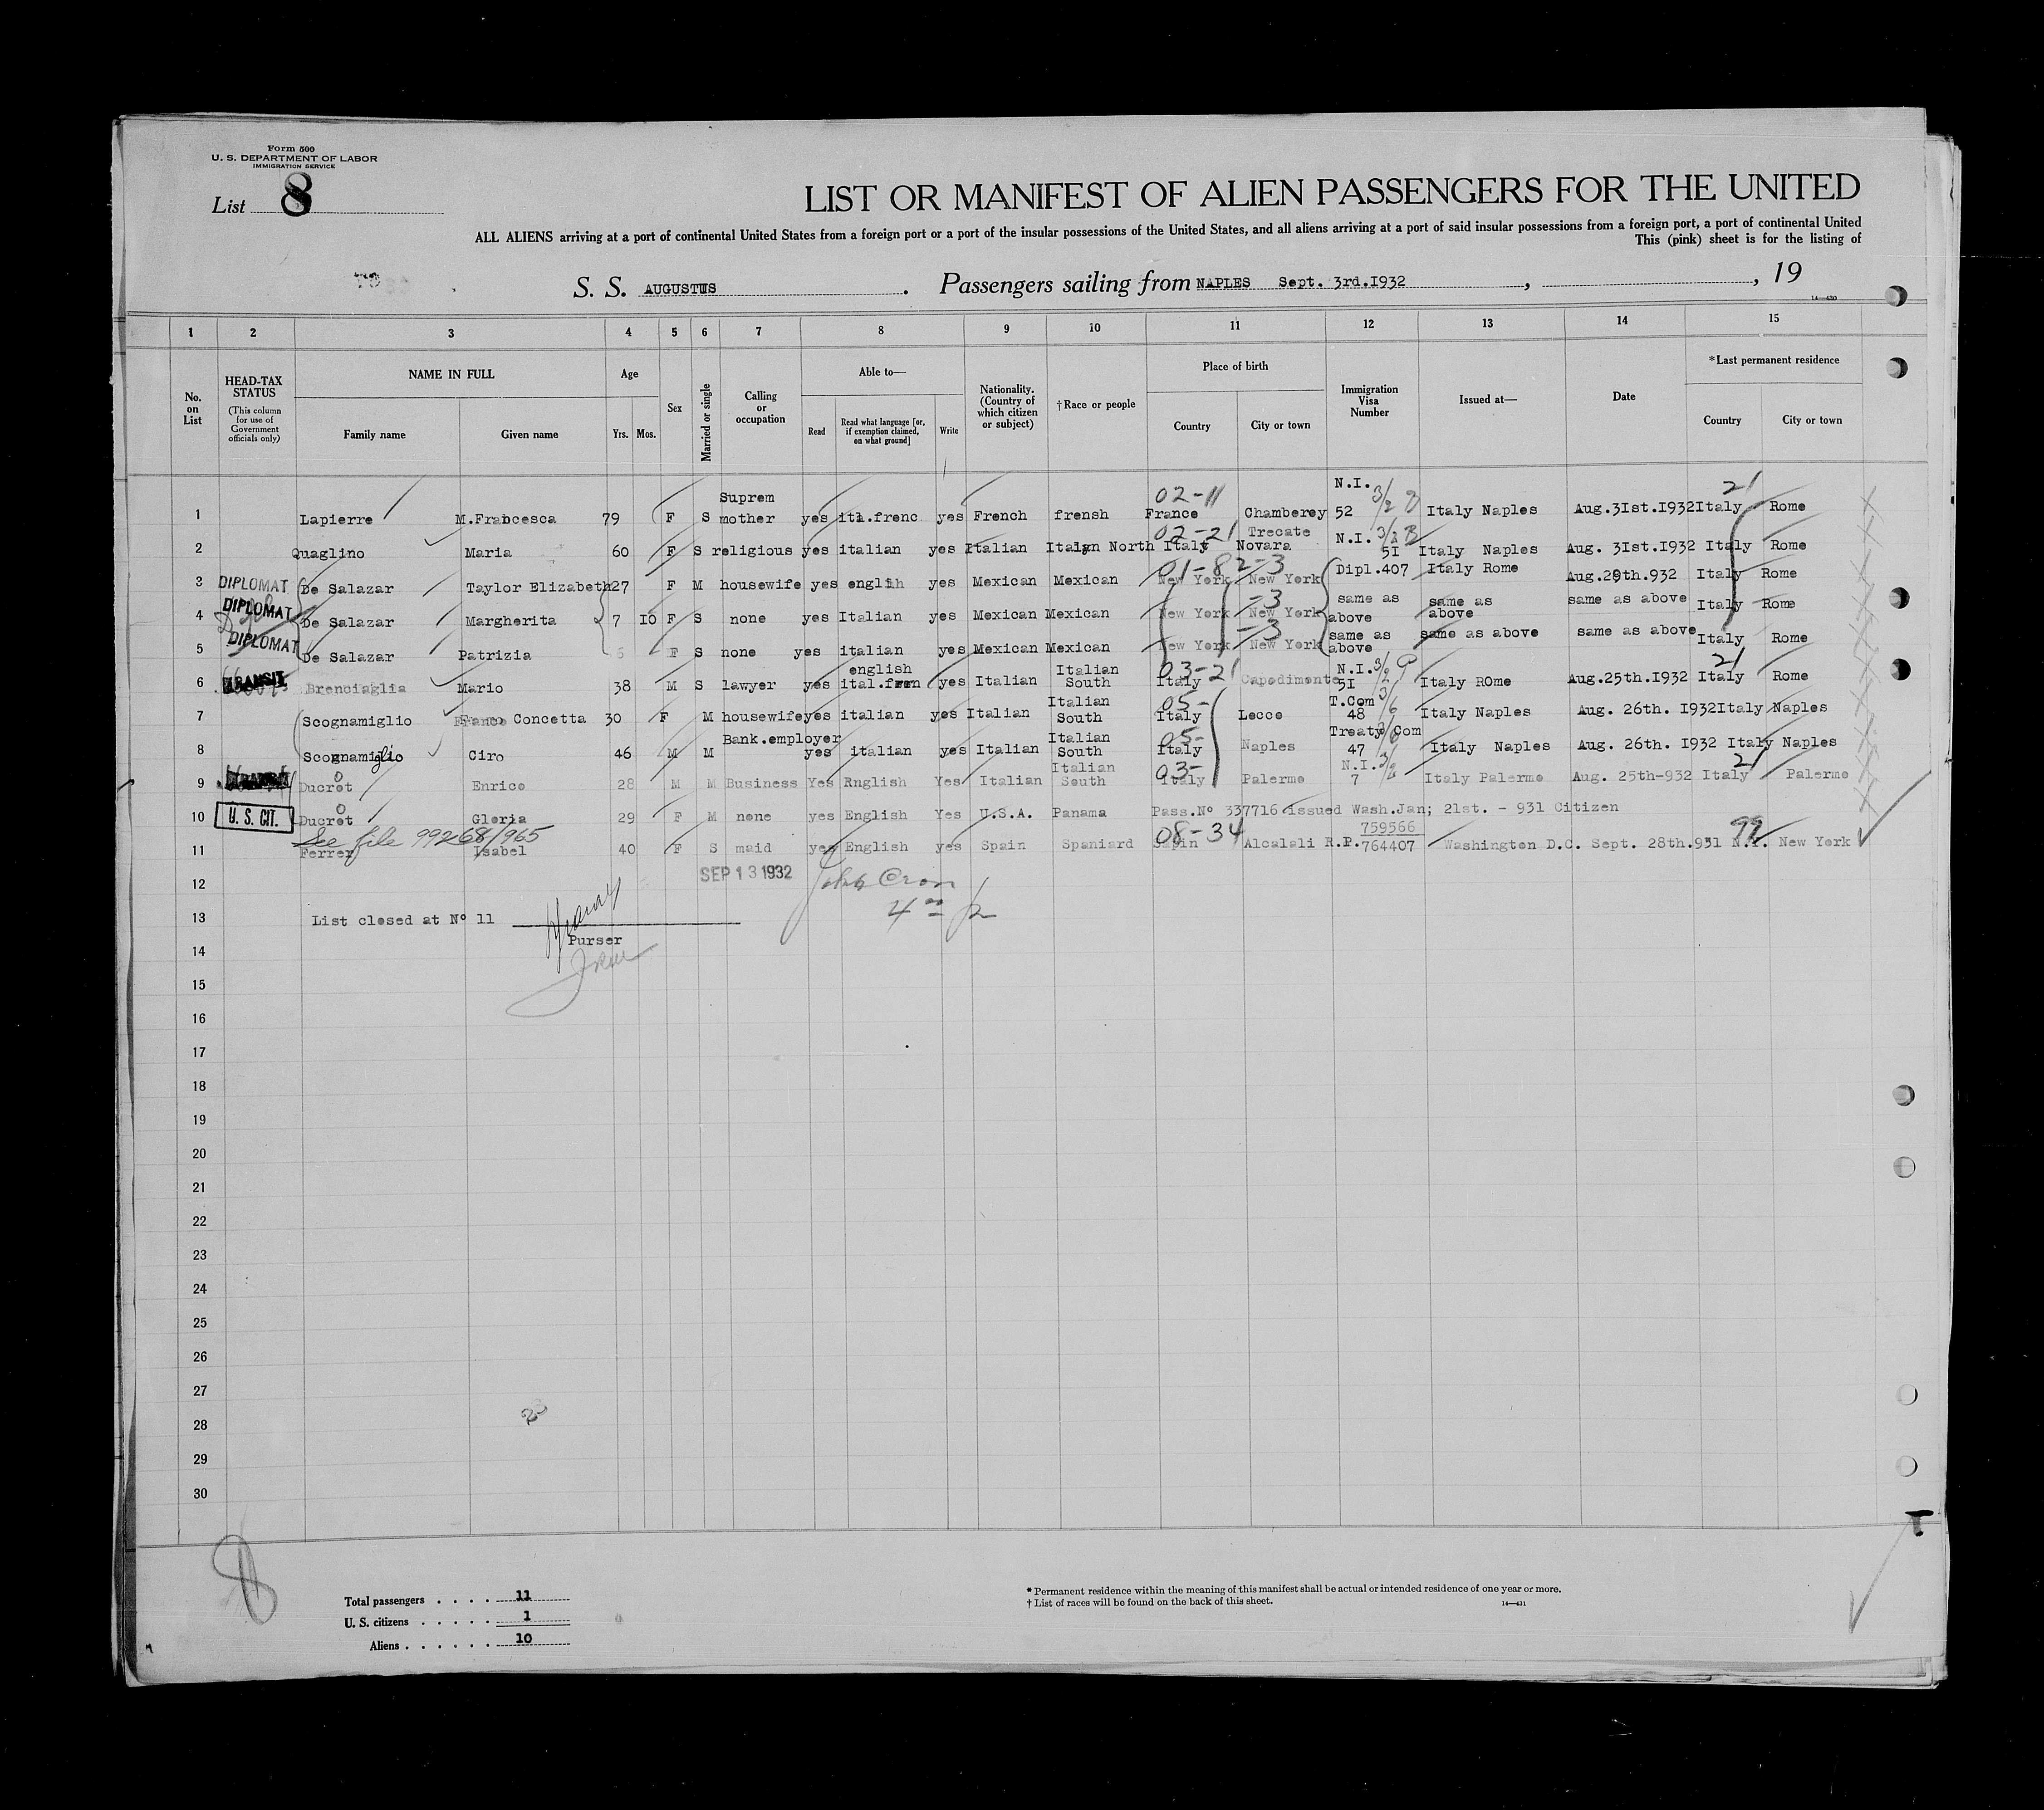 Form 500
U. S. DEPARTMENT OF LABOR
IMMIGRATION SERVICE
List 8
LIST OR MANIFEST OF ALIEN PASSENGERS FOR THE UNITED
ALL ALIENS arriving at a port of continental United States from a foreign port or a port of the insular possessions of the United States, and all aliens arriving at a port of said insular possessions from a foreign port, a port of continental United
This (pink) sheet is for the listing of
S. S. AUGUSTUS . Passengers sailing from NAPLES Sept. 3rd.I932 , , 19
14—430
1 2 3 4 5 6 7 8 9 10 11 12 13 14 15
No. on List
HEAD-TAX STATUS
(This column for use of Government officials only)
NAME IN FULL
Family name Given name
Age
Yrs. Mos.
Sex
Married or single
Calling or occupation
Able to—
Read Read what language [or, if exemption claimed, on what ground] Write
Nationality. (Country of which citizen or subject)
†Race or people
Place of birth
Country City or town
Immigration Visa Number
Issued at—
Date
*Last permanent residence
Country City or town
Suprem 02-11 N.I. 3/2 21
1 Lapierre M.Francesca 79 F S mother yes ita.frenc yes French frensh France Chamberey 52 Italy Naples Aug.3Ist.I932 Italy Rome
02-21 Trecate N.I. 3/2
2 Quaglino Maria 60 F S religious yes italian yes Italian Italyn North Italy Novara 5I Italy Naples Aug. 3Ist.I932 Italy Rome
01-82-3
3 DIPLOMAT De Salazar Taylor Elizabeth 27 F M housewife yes english yes Mexican Mexican New York New York Dipl.407 Italy Rome Aug.29th.932 Italy Rome
-3
4 DIPLOMAT De Salazar Margherita 7 IO F S none yes Italian yes Mexican Mexican New York New York same as above same as above same as above Italy Rome
-3
5 DIPLOMAT De Salazar Patrizia 6 F S none yes italian yes Mexican Mexican New York New York same as above same as above same as above Italy Rome
english Italian 03-21 N.I. 3/2 21
6 TRANSIT Brenciaglia Mario 38 M S lawyer yes ital.fren yes Italian South Italy Capodimonte 5I Italy ROme Aug.25th.I932 Italy Rome
Italian 05- T.Com 3/6
7 Scognamiglio Concetta 30 F M housewife yes italian yes Italian South Italy Lecce 48 Italy Naples Aug. 26th. I932 Italy Naples
Bank.employer Italian 05- Treaty Com
8 Scognamiglio Ciro 46 M M yes italian yes Italian South Italy Naples 47 Italy Naples Aug. 26th. I932 Italy Naples
Italian 03- N.I. 3/2 21
9 Ducrot Enrico 28 M M Business Yes Rnglish Yes Italian South Italy Palermo 7 Italy Palermo Aug. 25th-932 Italy Palermo
10 U. S. CIT. Ducrot Gloria 29 F M none yes English Yes U.S.A. Panama Pass.Nº 337716 issued Wash.Jan; 21st. - 931 Citizen
See file 99268/965 08-34 759566 99
11 Ferrer Isabel 40 F S maid yes English yes Spain Spaniard Sapin Alcalali R.P. 764407 Washington D.C. Sept. 28th.931 N.Y. New York
12 SEP 13 1932 John
13 List closed at Nº 11
Purser
14
15
16
17
18
19
20
21
22
23
24
25
26
27
28
29
30
8
Total passengers . . . . 11
U. S. citizens . . . . . 1
Aliens . . . . . . 10
* Permanent residence within the meaning of this manifest shall be actual or intended residence of one year or more.
† List of races will be found on the back of this sheet.
14—431